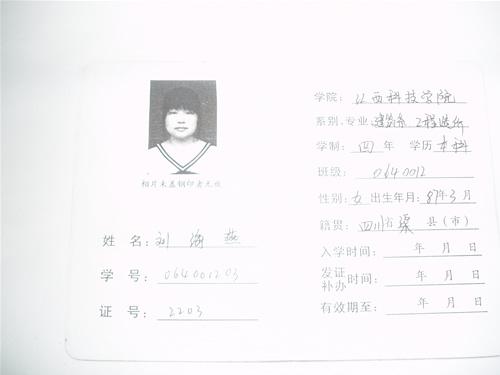 相片未盖钢印者无效
姓 名: 刘 海 燕
学 号: 064001203
证 号: 2203
学院: 江西科技学院
系别、专业: 建筑系 工程造价
学制: 四 年 学历 本科
班级: 0640012
性别: 女 出生年月: 87年3月
籍贯: 四川省 渠 县(市)
入学时间: 年 月 日
发证
补办 时间: 年 月 日
有效期至: 年 月 日